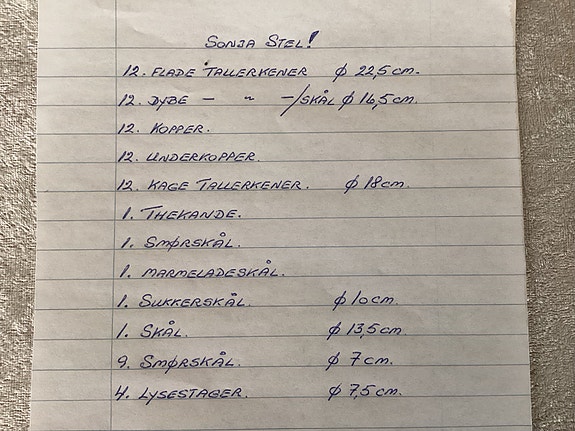 SONJA STEL!
12. FLADE TALLERKENER ϕ 22,5 cm.
12. DYBE — ~ —/SKÅL ϕ 16,5 cm.
12. KOPPER.
12. UNDERKOPPER.
12. KAGE TALLERKENER. ϕ 18 cm.
1. THEKANDE.
1. SMØRSKÅL.
1. MARMELADESKÅL.
1. SUKKERSKÅL. ϕ 10 cm.
1. SKÅL. ϕ 13,5 cm.
9. SMØRSKÅL. ϕ 7 cm.
4. LYSESTAGER. ϕ 7,5 cm.